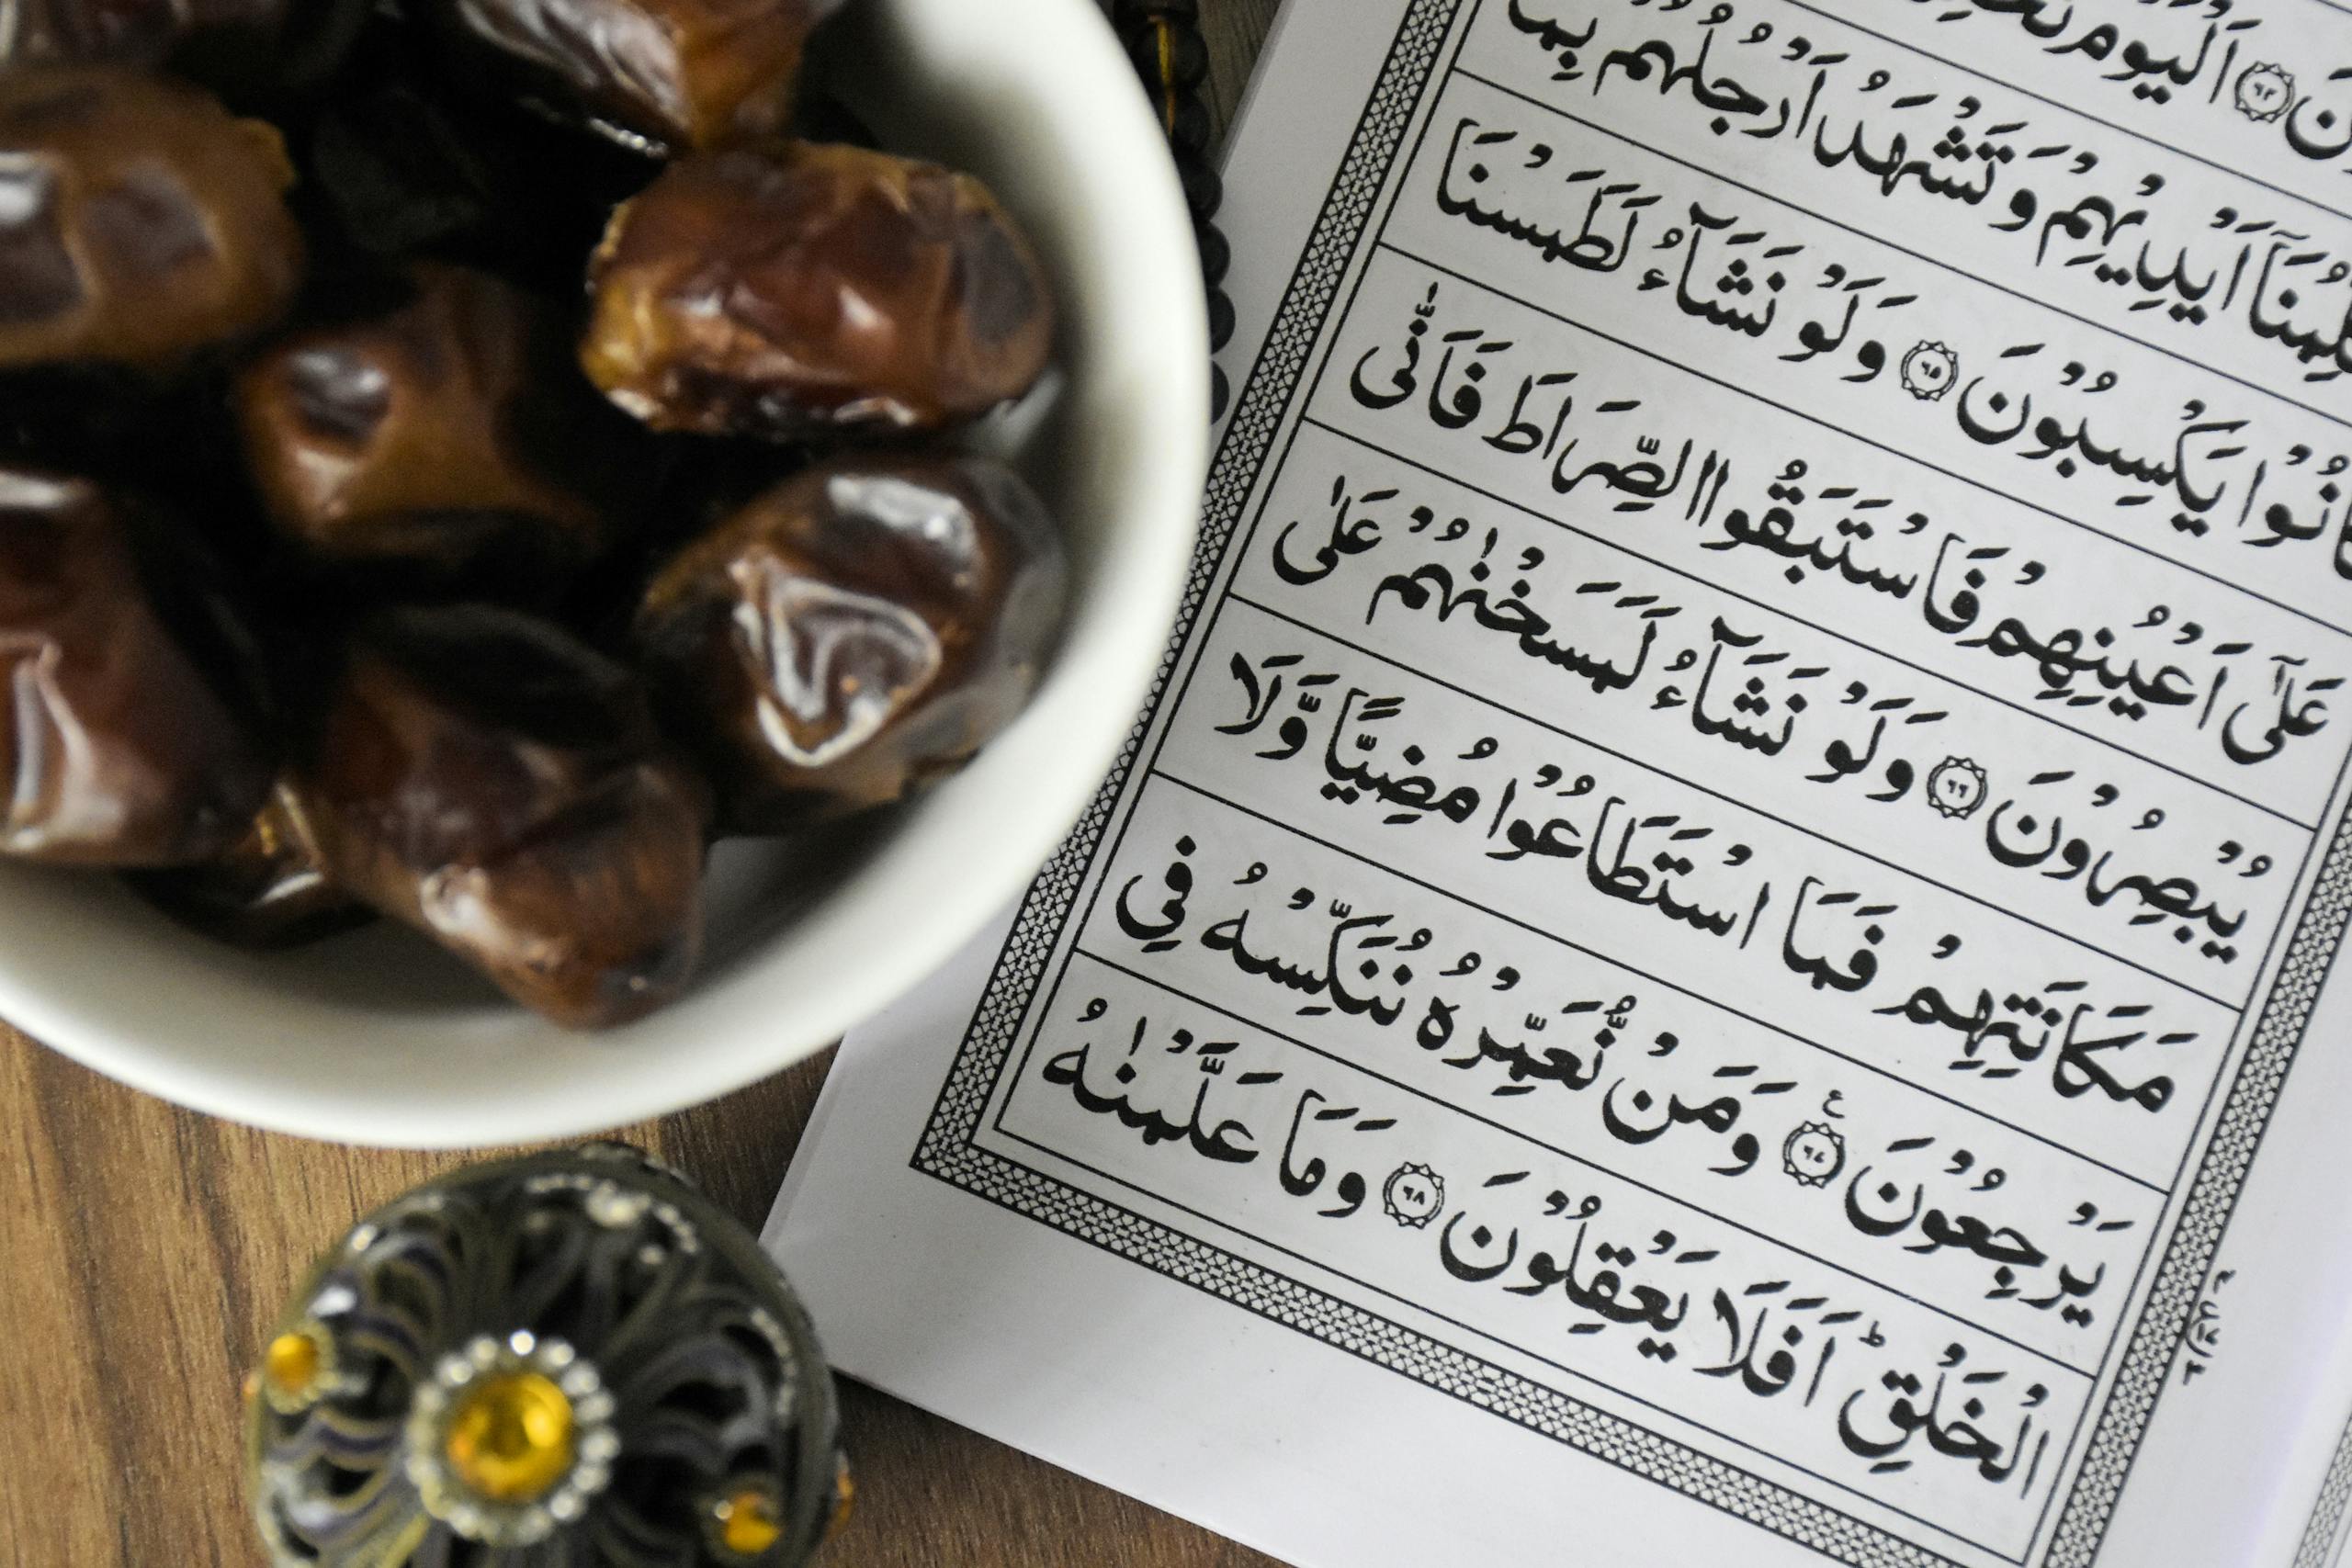 ۙ۝۶۴ اَلْيَوْمَ
اَيْدِيْهِمْ وَتَشْهَدُ اَرْجُلُهُمْ بِمَا
كَانُوْا يَكْسِبُوْنَ ۝۶۵ وَلَوْ نَشَآءُ لَطَمَسْنَا
عَلٰۤى اَعْيُنِهِمْ فَاسْتَبَقُوا الصِّرَاطَ فَاَنّٰى
يُبْصِرُوْنَ ۝۶۶ وَلَوْ نَشَآءُ لَمَسَخْنٰهُمْ عَلٰى
مَكَانَتِهِمْ فَمَا اسْتَطَاعُوْا مُضِيًّا وَّلَا
يَرْجِعُوْنَ ۝۶۷ ع وَمَنْ نُّعَمِّرْهُ نُنَكِّسْهُ فِى
الْخَلْقِ ؕ اَفَلَا يَعْقِلُوْنَ ۝۶۸ وَمَا عَلَّمْنٰهُ